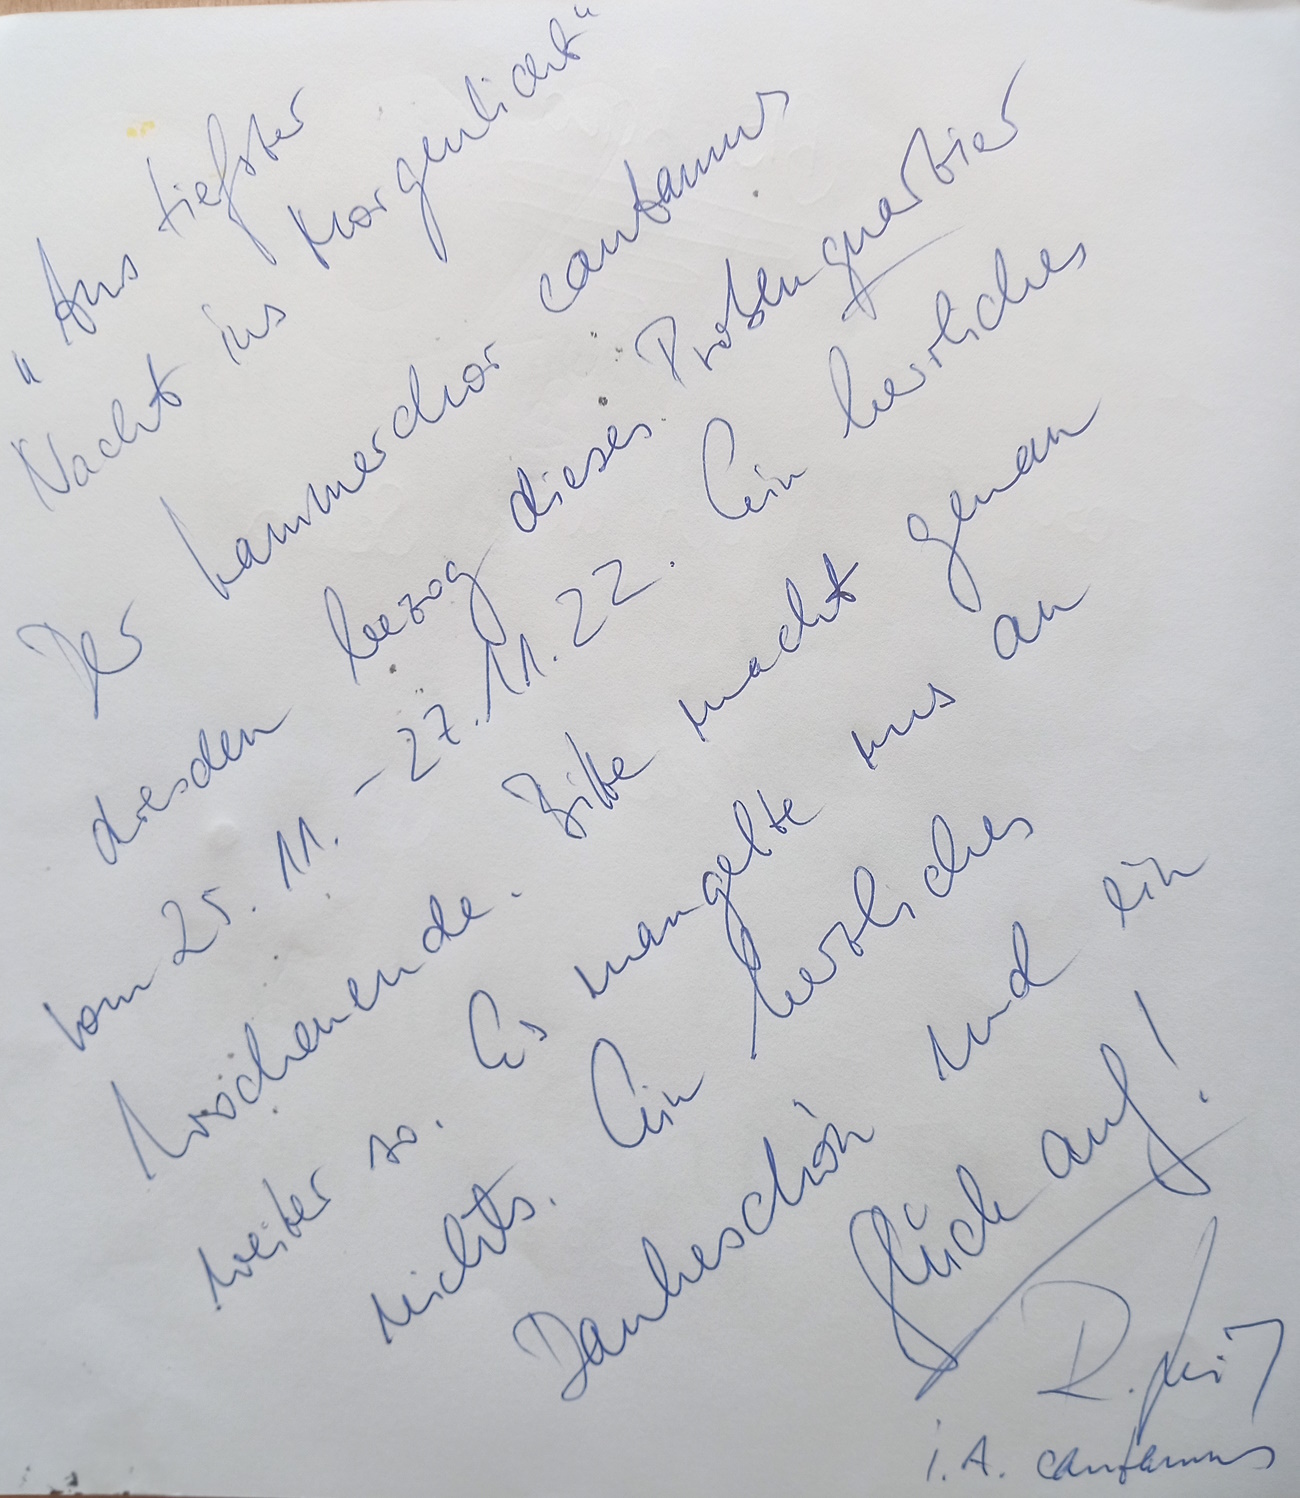 „Aus tiefster
Nacht ins Morgenlicht“
Der Kammerchor cantamus
dresden bezog dieses Probenquartier
vom 25.11. – 27.11.22. Ein herrliches
Wochenende. Bitte macht genau
weiter so. Es mangelte uns an
nichts. Ein herzliches
Dankeschön und ein
Glück auf!
R.
i.A. cantamus